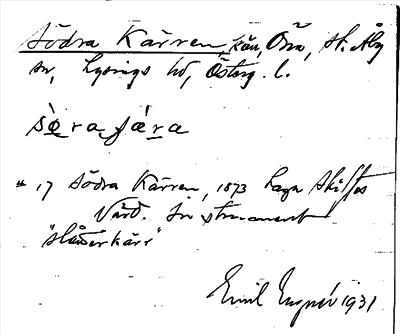 Södra Kärren, kärr, Öna, St. Åby
sn, Lysings hd, Österg. l.
sø̀ra ɟǽra
" 17 Södra Kärren, 1873 Laga Skiftes
Värd. Instrument
"slåtterkärr"
Emil 1931